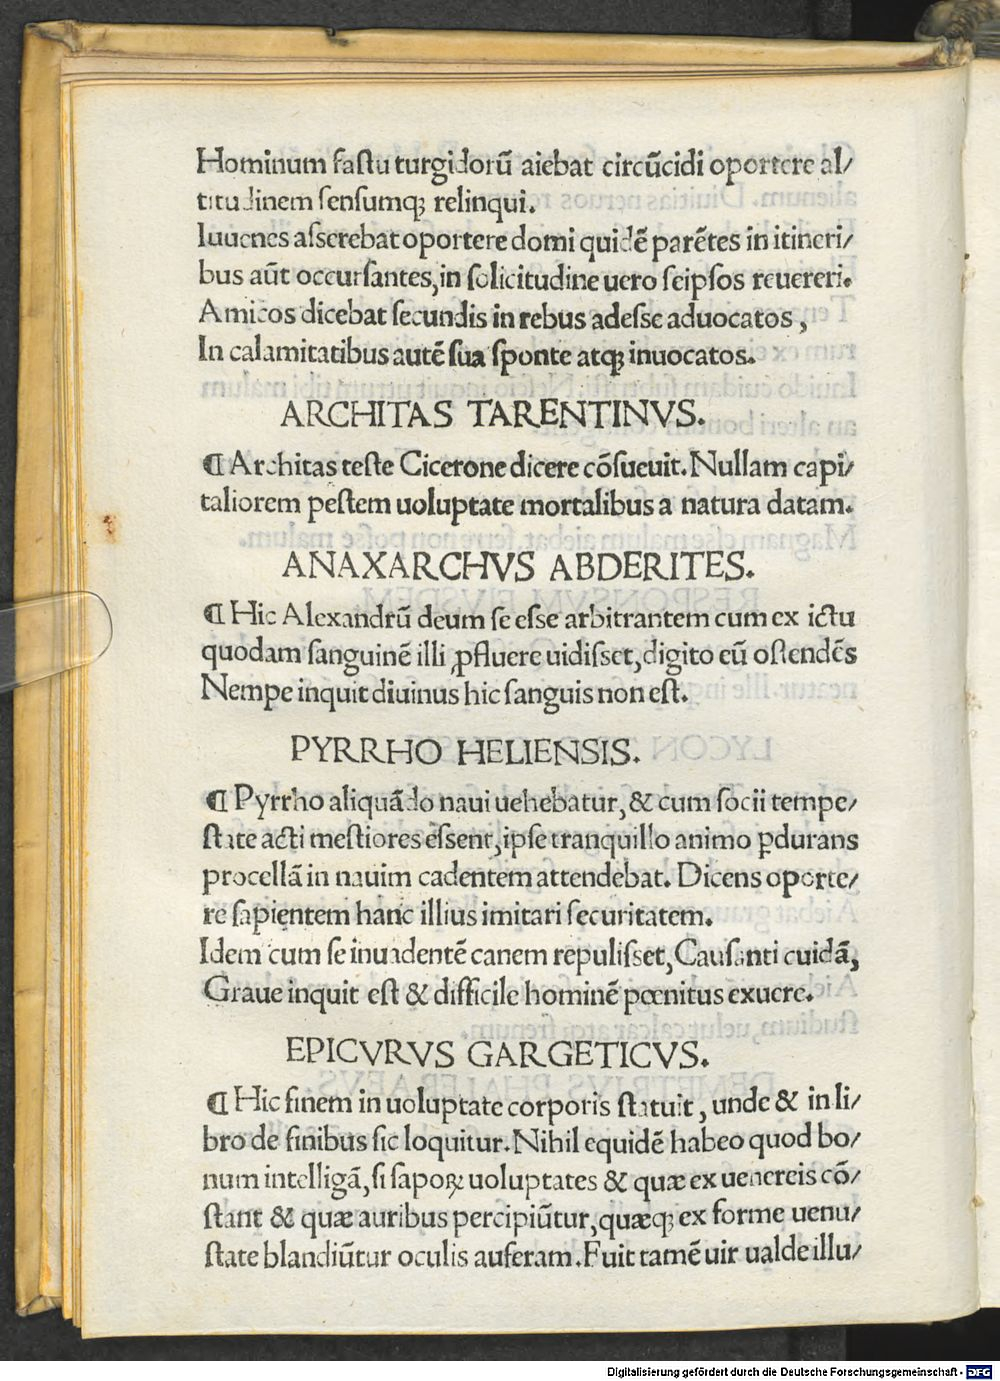 Hominum fastu turgidorũ aiebat circũcidi oportere al/
titudinem sensumqꝫ relinqui.
Iuuenes asserebat oportere domi quidẽ parẽtes in itineri/
bus aũt occursantes, in solicitudine uero seipsos reuereri.
Amicos dicebat secundis in rebus adesse aduocatos,
In calamitatibus autẽ sua sponte atqꝫ inuocatos.
ARCHITAS TARENTINVS.
¶ Architas teste Cicerone dicere cõsueuit. Nullam capi/
taliorem pestem uoluptate mortalibus a natura datam.
ANAXARCHVS ABDERITES.
¶ Hic Alexandrũ deum se esse arbitrantem cum ex ictu
quodam sanguinẽ illi ꝓfluere uidisset, digito eũ ostendẽs
Nempe inquit diuinus hic sanguis non est.
PYRRHO HELIENSIS.
¶ Pyrrho aliquãdo naui uehebatur, & cum socii tempe/
state acti mestiores essent, ipse tranquillo animo ꝑdurans
procellã in nauim cadentem attendebat. Dicens oporte/
re sapientem hanc illius imitari securitatem.
Idem cum se inuadentẽ canem repulisset, Causanti cuidã,
Graue inquit est & difficile hominẽ pœnitus exuere.
EPICVRVS GARGETICVS.
¶ Hic finem in uoluptate corporis statuit, unde & in li/
bro de finibus sic loquitur. Nihil equidẽ habeo quod bo/
num intelligã, si sapoꝝ uoluptates & quæ ex uenereis cõ/
stant & quæ auribus percipiũtur, quæqꝫ ex forme uenu/
state blandiũtur oculis auferam. Fuit tamẽ uir ualde illu/
Digitalisierung gefördert durch die Deutsche Forschungsgemeinschaft - DFG